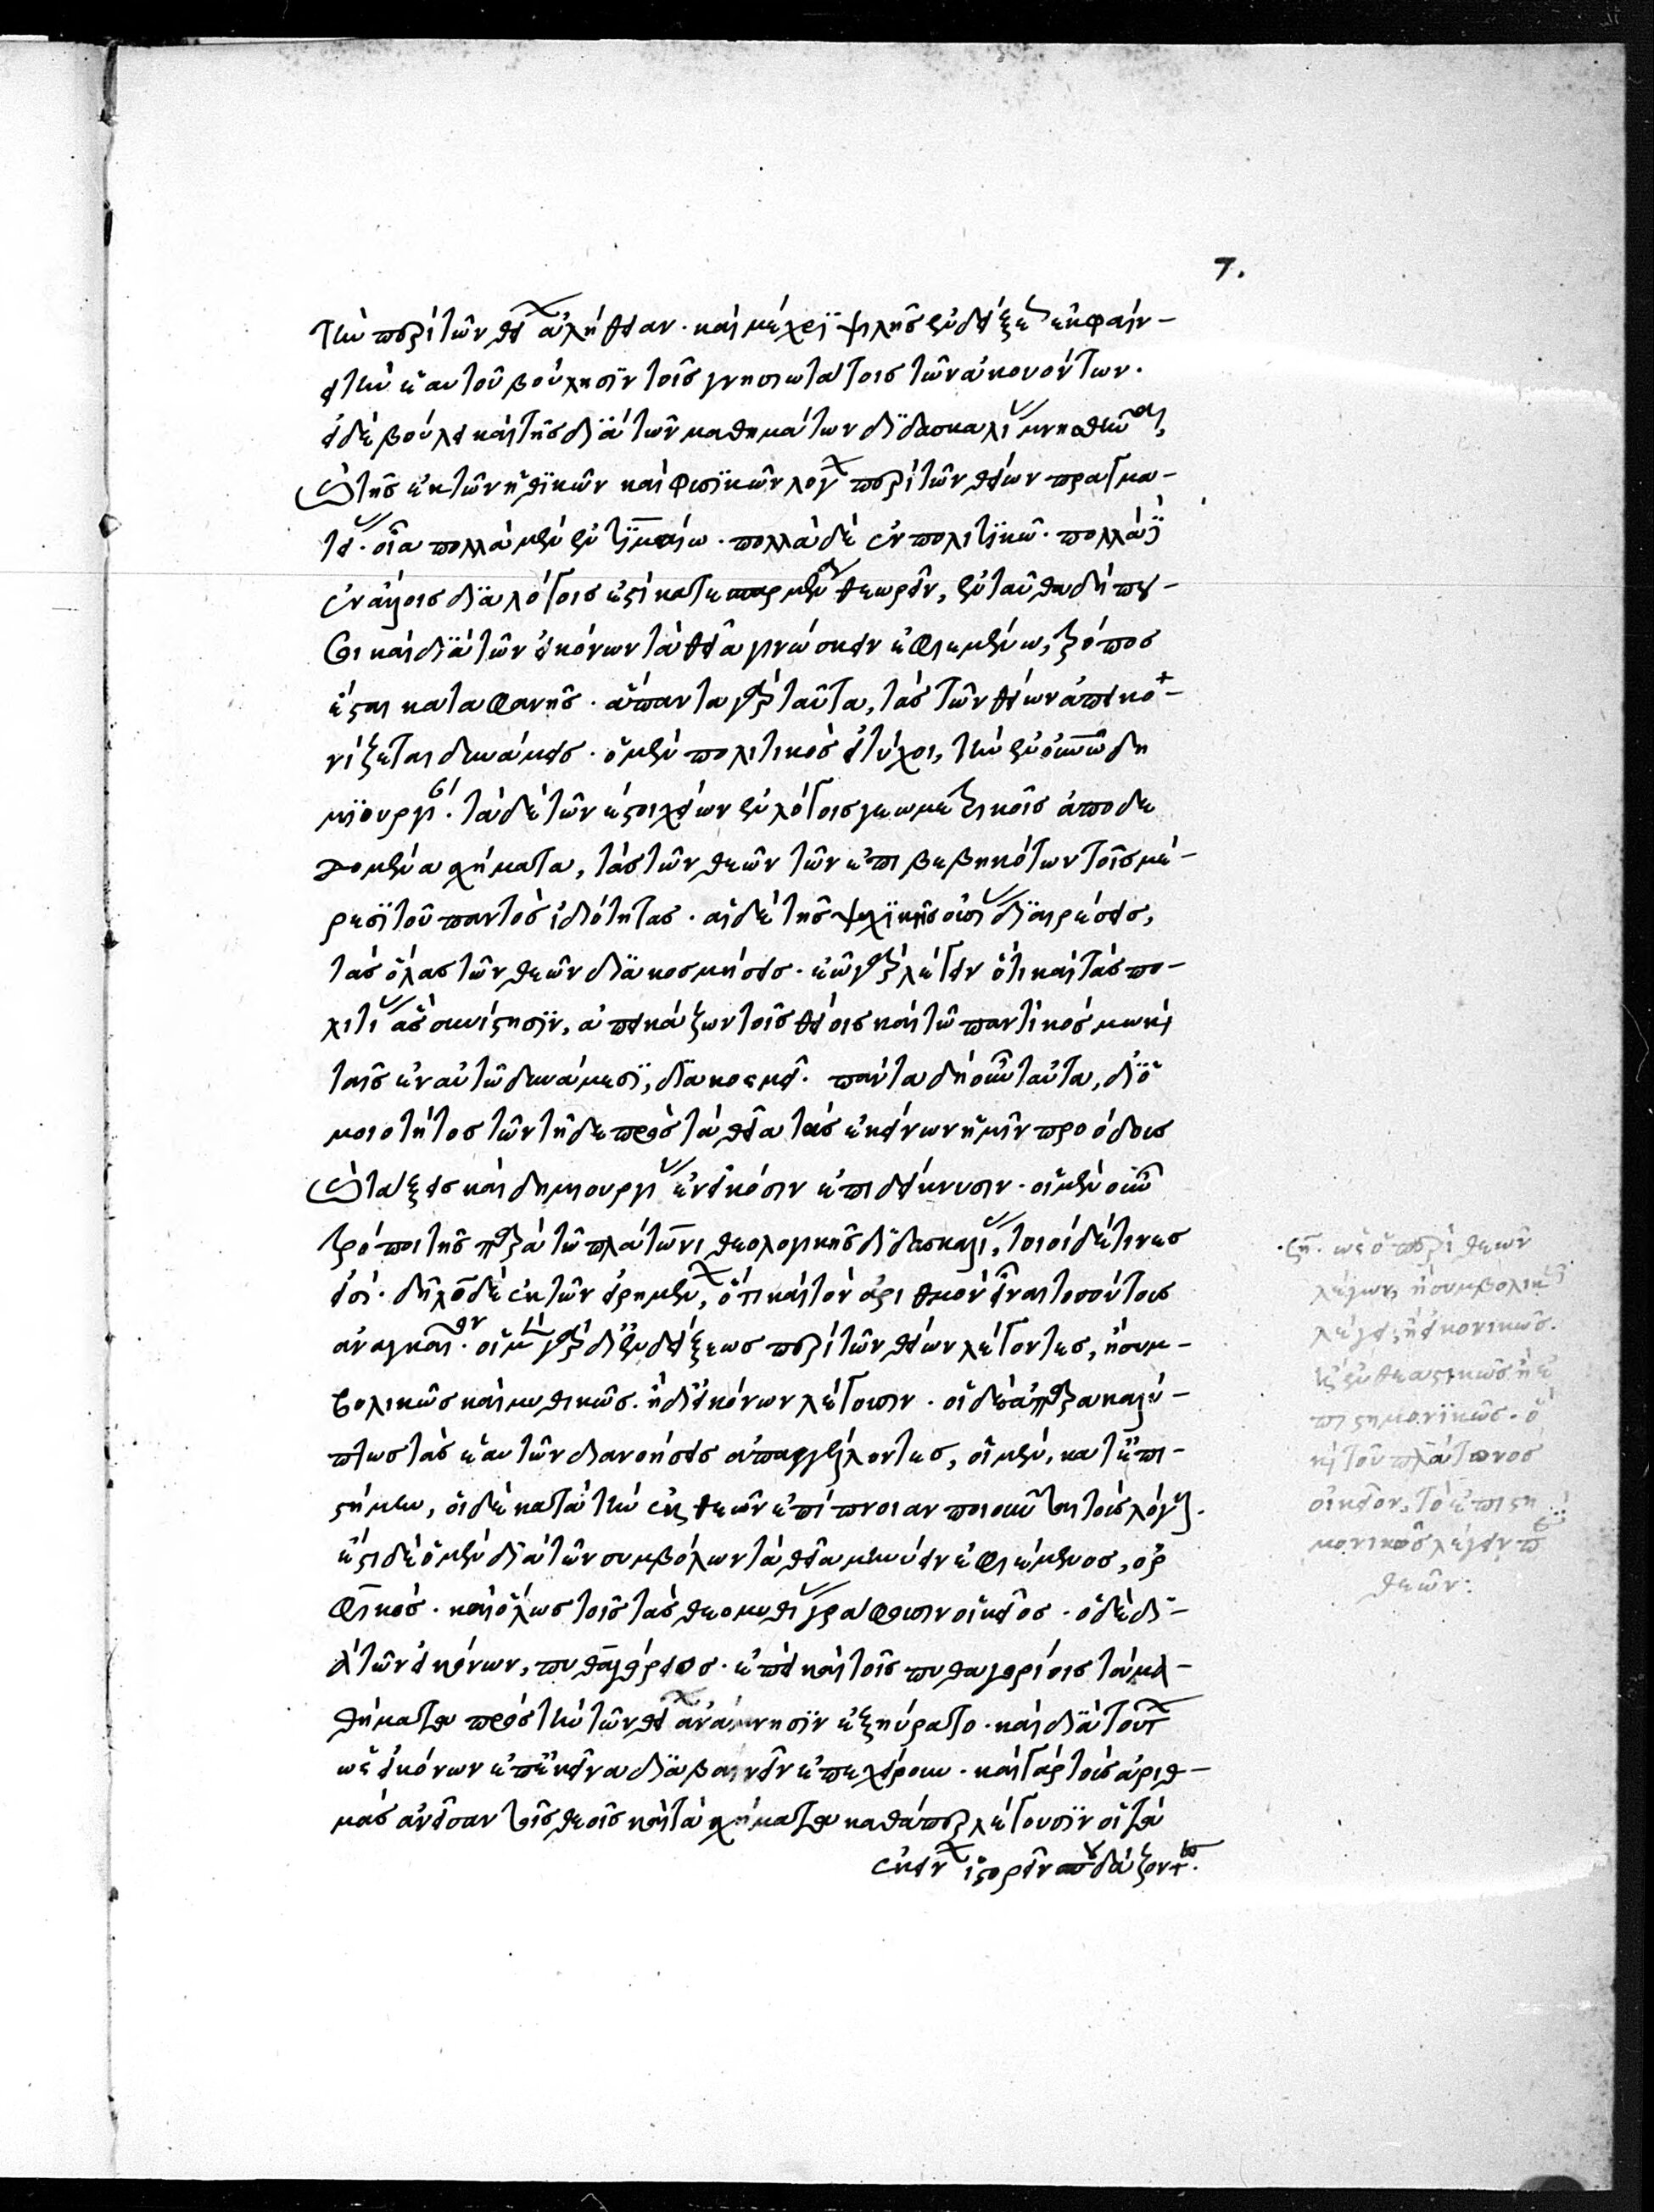 τὴν περὶ τῶν θείων ἀλήθειαν. καὶ μέχρι ψιλῆς ἐνδείξεως ἐκφαίν-
ει τὴν ἑαυτοῦ βούλησιν τοῖς γνησιωτάτοις τῶν ἀκουόντων.
εἰ δὲ βούλει καὶ τῆς διὰ τῶν μαθημάτων διδασκαλίας μνησθῆναι,
καὶ τῆς ἐκ τῶν ἠθικῶν καὶ φυσικῶν λόγων περὶ τῶν θείων πραγμα-
τείας. οἷα πολλὰ μὲν ἐν τιμαίω. πολλὰ δὲ ἐν πολιτικῶ. πολλὰ δὲ
ἐν ἄλλοις διαλόγοις ἐστὶ κατεσπαρμένα θεωρεῖν, ἐνταῦθα δή που-
σοι καὶ διὰ τῶν εἰκόνων τὰ θεῖα γινώσκειν ἐφιεμένω, τρόπος
ἔσται καταφανής. ἅπαντα γὰρ ταῦτα, τὰς τῶν θείων ἀπεικο-
νίζεται δυνάμεις. ὁ μὲν πολιτικὸς εἰ τύχοι, τὴν ἐν οὐνῶ δη
μιουργίαν. τὰ δὲ τῶν ε στοιχείων ἐν λόγοις γεωμετρικοῖς ἀποδε
δομένα σχήματα, τὰς τῶν θεῶν τῶν ἐπιβεβηκότων τοῖς μέ-
ρεσι τοῦ παντὸς ἰδιότητας. αἱ δὲ τῆς ψυχικῆς οὐσίας διαιρέσεις,
τὰς ὅλας τῶν θεῶν διακοσμήσεις. ἐῶ γὰρ λέγειν ὅτι καὶ τὰς πο-
λιτείας ἃς συνίστησιν, ἀπεικάζων τοῖς θείοις καὶ τῶ παντὶ κόσμω καὶ
ταῖς ἐν αὐτῶ δυνάμεσι, διακοσμεῖ. πάντα δὴ οὖν ταῦτα, δι ὁ
μοιότητος τῶν τῆδε πρὸς τὰ θεῖα τὰς ἐκείνων ἡμῖν προόδους
καὶ τάξεις καὶ δημιουργίας ἐν εἰκόσιν ἐπιδείκνυσιν. οἱ μὲν οὖν
τρόποι τῆς παρὰ τῶ πλάτωνι θεολογικῆς διδασκαλίας, τοιοίδέ τινες
εἰσί. δῆλον δὲ ἐκ τῶν εἰρημένων, ὅτι καὶ τὸν ἀριθμὸν εἶναι τοσούτους
ἀναγκαῖον. οἱ μὲν γὰρ δι ἐνδείξεως περὶ τῶν θείων λέγοντες, ἢ συμ-
βολικῶς καὶ μυθικῶς. ἢ δι εἰκόνων λέγουσιν. οἱ δὲ ἀπαρακαλύ-
πτως τὰς ἑαυτῶν διανοήσεις ἀπαγγέλλοντες, οἱ μὲν, κατ ἐπι-
στήμην, οἱ δὲ κατὰ τὴν ἐκ θεῶν ἐπίπνοιαν ποιοῦνται τοὺς λόγους.
ἔστι δὲ ὁ μὲν διὰ τῶν συμβόλων τὰ θεῖα μηνύειν ἐφιέμενος, ὀρ
φικὸς. καὶ ὅλως τοῖς τὰς θεομυθίας γράφουσιν οἰκεῖος. ὁ δὲ δι-
ὰ τῶν εἰκόνων, πυθαγόρειος. ἐπεὶ καὶ τοῖς πυθαγορείοις τὰ μα-
θήματα πρὸς τὴν τῶν θείων ἀνάμνησιν ἐξηύρητο. καὶ διὰ τούτων
ὡς εἰκόνων ἐπ ἐκεῖνα διαβαίνειν ἐπεχείρουν. καὶ γὰρ τοὺς ἀριθ-
μοὺς ἀνεῖσαν τοῖς θεοῖς καὶ τὰ σχήματα καθάπερ λέγουσιν οἱ τὰ
ἐκείνων ἱστορεῖν σπουδάζοντες.
7.
ση. ὡς ὁ περὶ θεῶν
λέγων, ἢ συμβολικῶς
λέγει, ἢ εἰκονικῶς.
ἢ ἐνθεαστικῶς ἢ ἐ
πιστημονικῶς. ὅ
καὶ τοῦ πλάτωνος
οἰκεῖον, τὸ ἐπιστη
μονικῶς λέγειν περὶ
θεῶν: